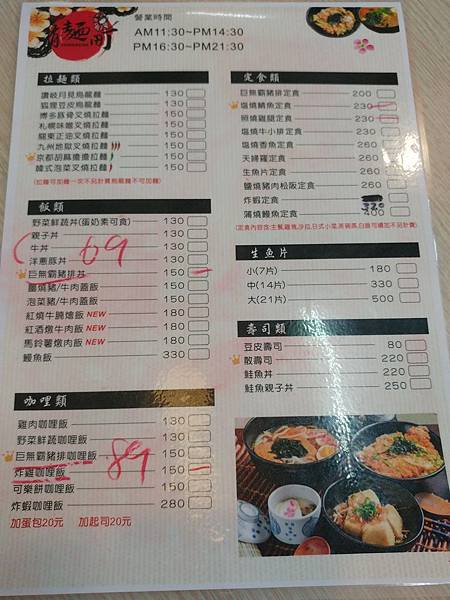 有麵町
營業時間
AM11:30~PM14:30
PM16:30~PM21:30
拉麵類
讚岐月見烏龍麵 130
狐狸豆皮烏龍麵 130
博多豚骨叉燒拉麵 150
札幌味噌叉燒拉麵 150
關東正油叉燒拉麵 150
九州地獄叉燒拉麵 150
京都胡麻擔擔拉麵 150
韓式泡菜叉燒拉麵 150
(拉麵可加麵一次不另計費烏龍麵不可加麵)
飯類
野菜鮮蔬丼(蛋奶素可食) 130
親子丼 130
牛丼 130
洋蔥豚丼 130
69
巨無霸豬排丼 150
鹽燒豬/牛肉蓋飯 150
泡菜豬/牛肉蓋飯 150
紅燒牛腩燴飯 NEW 180
紅酒燉牛肉飯 NEW 180
馬鈴薯燉肉飯 NEW 180
鰻魚飯 330
咖哩類
雞肉咖哩飯 150
野菜鮮蔬咖哩飯 150
巨無霸豬排咖哩飯 150
89
炸雞咖哩飯 150
可樂餅咖哩飯 200
炸蝦咖哩飯 280
加蛋包20元 加起司20元
定食類
巨無霸豬排定食 200
塩燒鯖魚定食 230
照燒雞腿定食 230
塩燒牛小排定食 260
塩燒香魚定食 260
天婦羅定食 260
生魚片定食 260
鹽燒豬肉松阪定食 260
炸蝦定食 320
蒲燒鰻魚定食 400
生魚片
小(7片) 180
中(14片) 330
大(21片) 500
壽司類
豆皮壽司 80
散壽司 220
鮭魚丼 220
鮭魚親子丼 250